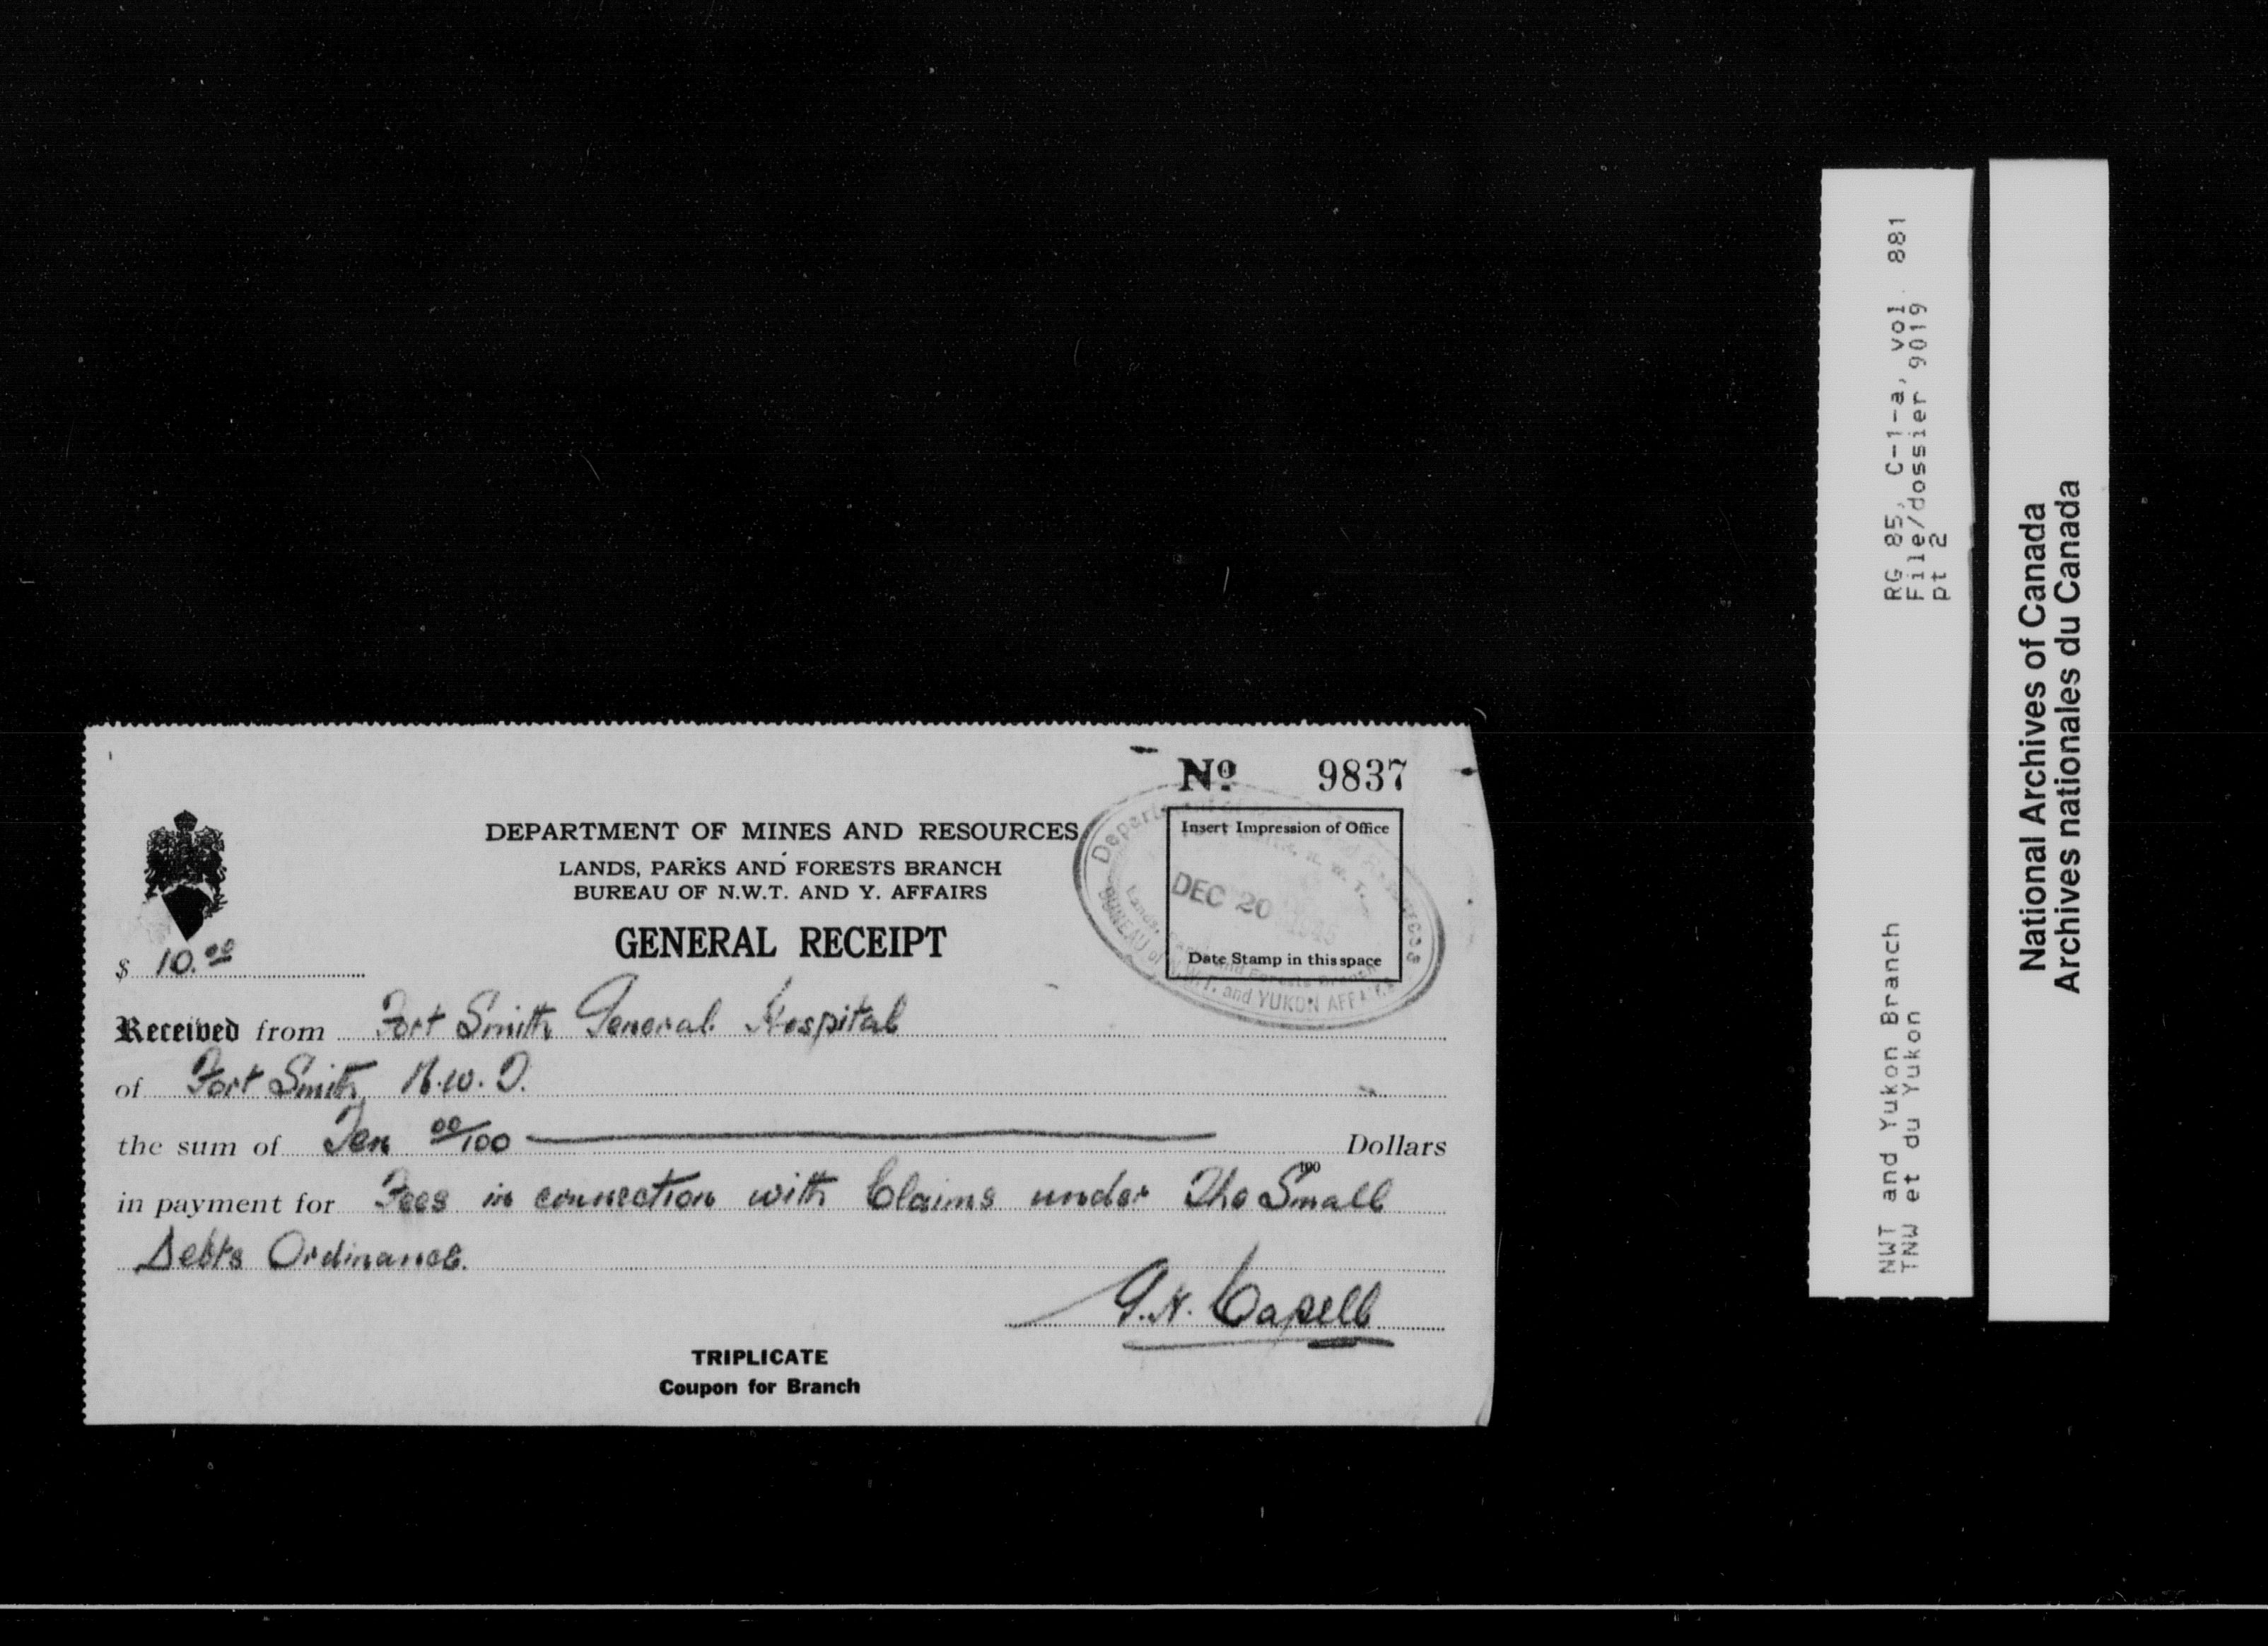 No. 9837
DEPARTMENT OF MINES AND RESOURCES
LANDS, PARKS AND FORESTS BRANCH
BUREAU OF N.W.T. AND Y. AFFAIRS
GENERAL RECEIPT
Insert Impression of Office
DEC 20 1945
Date Stamp in this space
Lands, Parks and Forests Branch
BUREAU of N.W.T. and YUKON AFFAIRS
$ 10.00
Received from Fort Smith General Hospital
of Fort Smith, N.W.T.
the sum of Ten 00/100 Dollars
100
in payment for Fees in connection with Claims under The Small
Debts Ordinance.
G.H. Capell
TRIPLICATE
Coupon for Branch
RG 85, C-1-a, vol 881
File/dossier 9019
pt 2
NWT and Yukon Branch
TNW et du Yukon
National Archives of Canada
Archives nationales du Canada